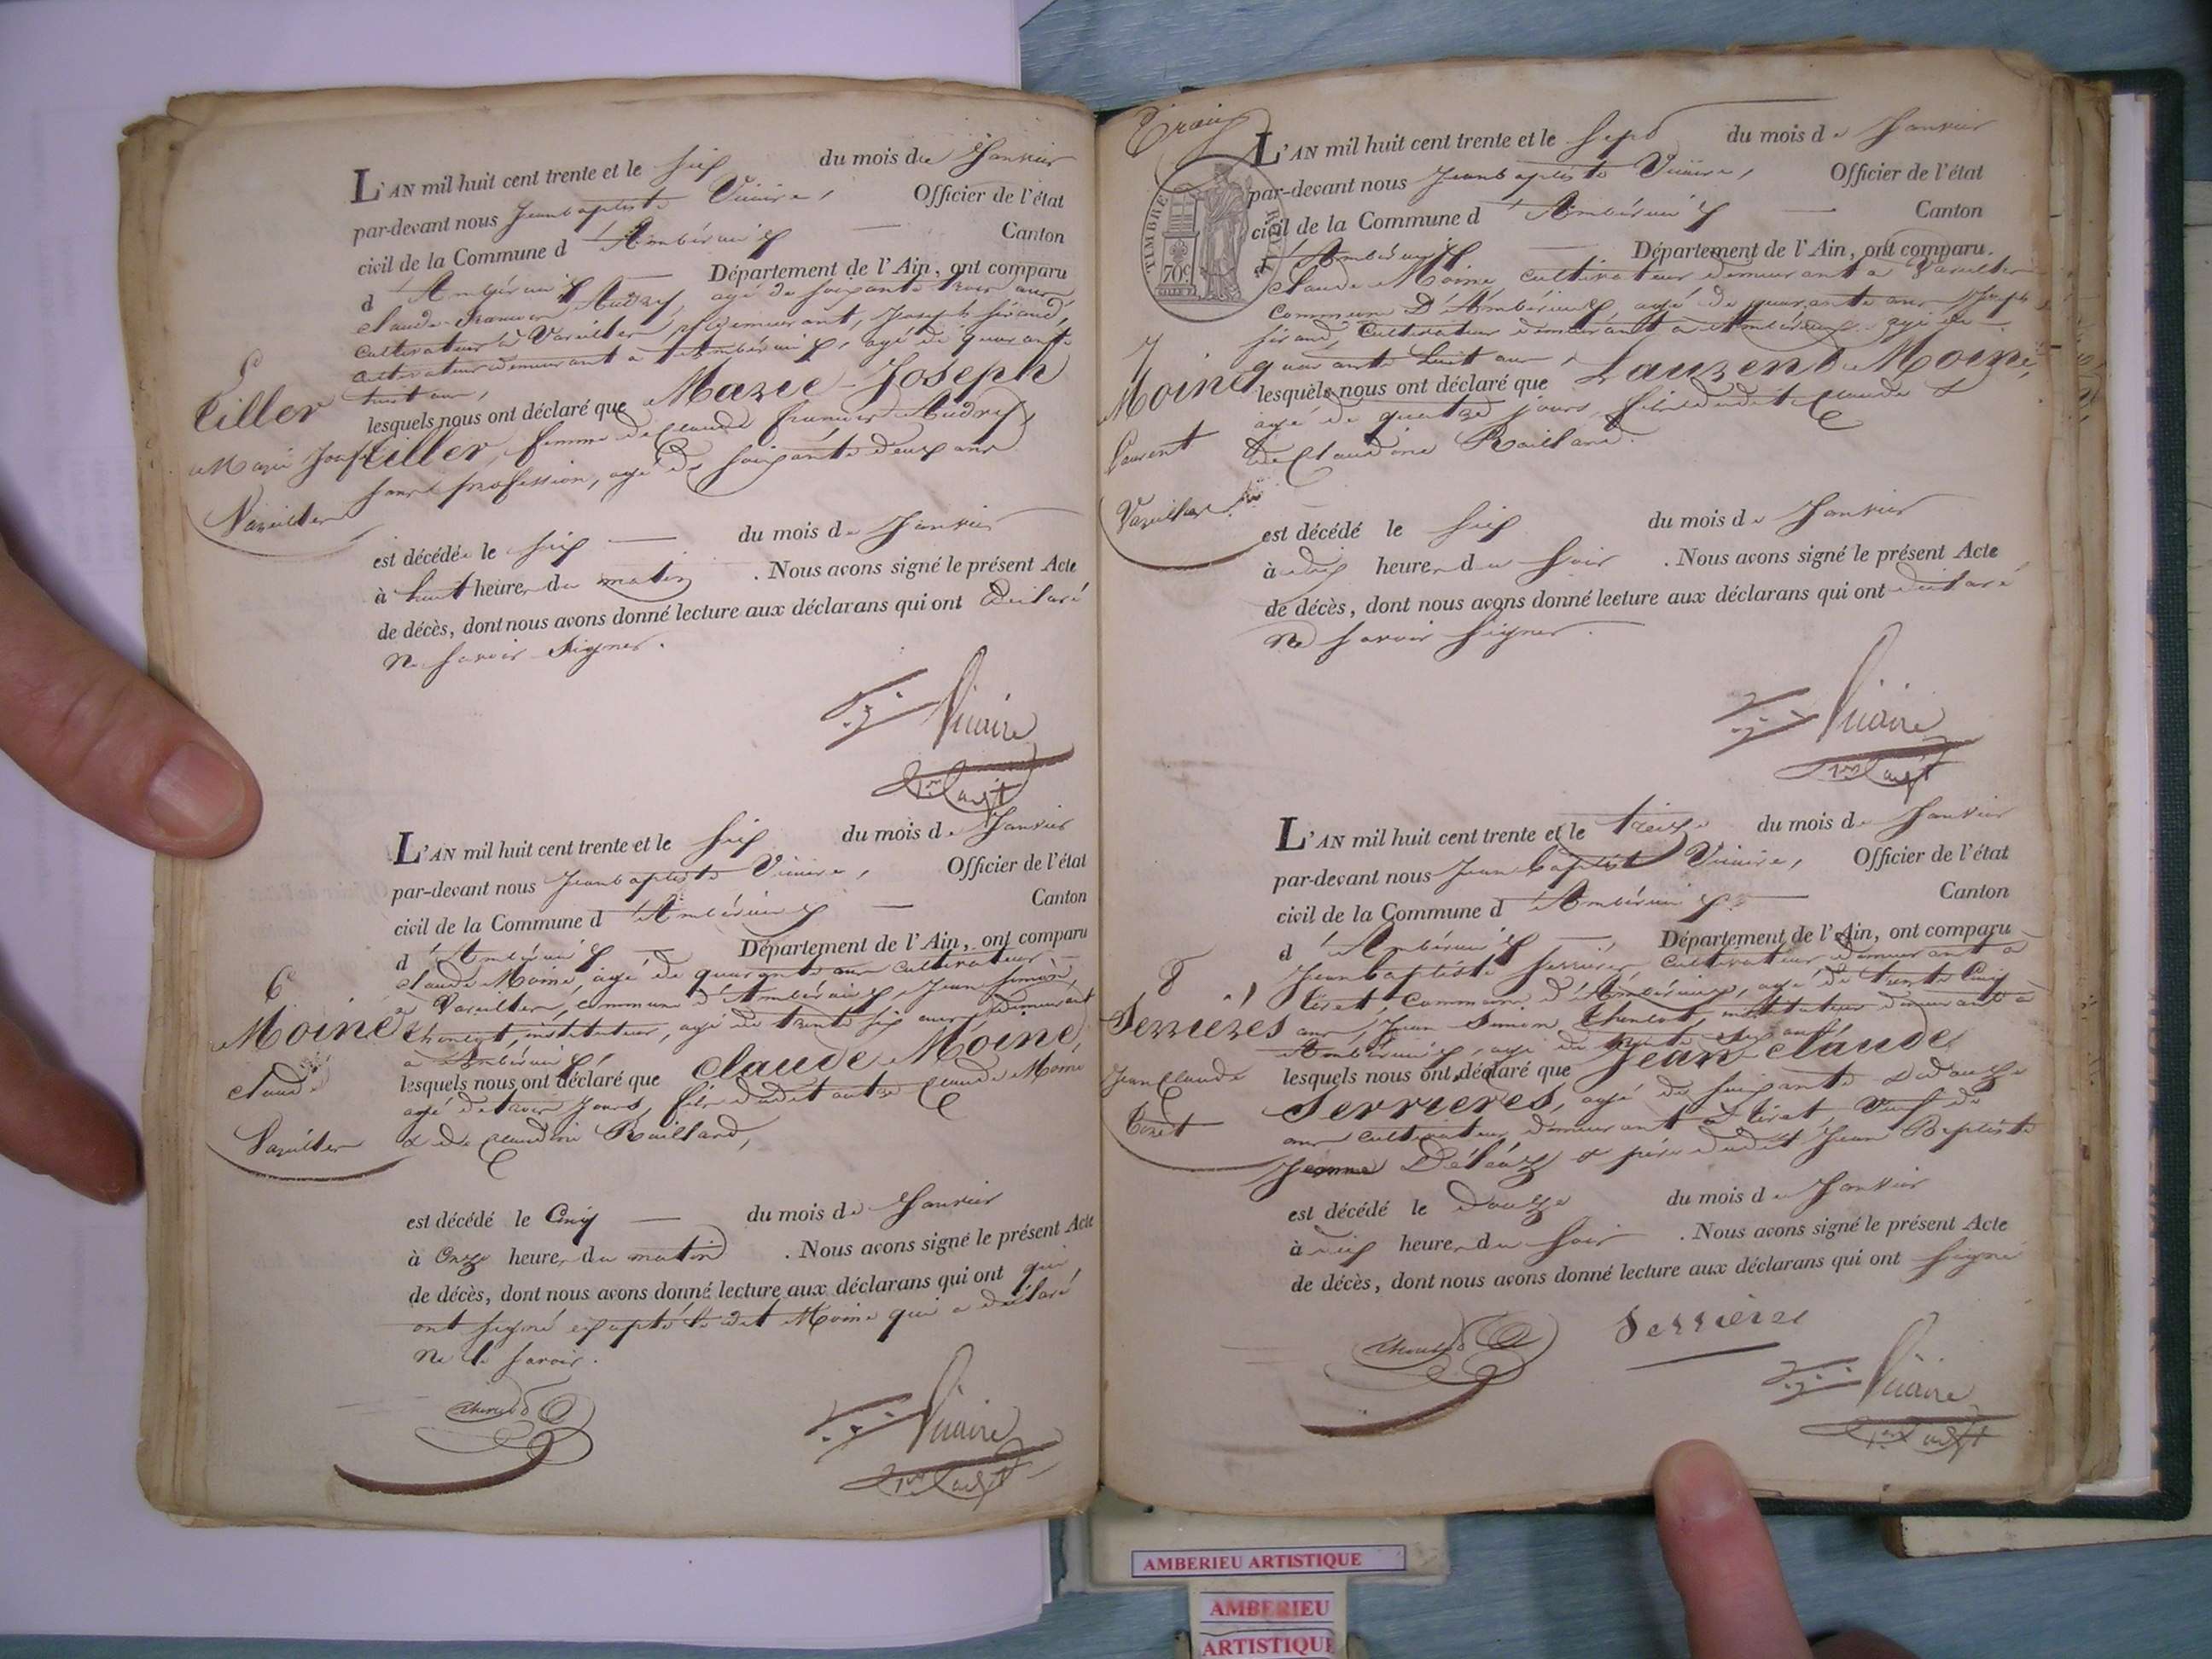 L'AN mil huit cent trente et le six du mois de Janvier
par-devant nous Jeanbaptiste Vicaire, Officier de l'état
civil de la Commune d'Ambérieux — Canton
d'Ambérieux — Département de l'Ain, ont comparu
Claude-François Audry, agé de soixante trois ans
Cultivateur à Vareilles, y demeurant, Joseph féraud,
cultivateur demeurant à Ambérieux, agé de quarante
huit ans,
lesquels nous ont déclaré que Marie-Joseph
Tiller, femme de Claude françois Audry,
sans profession, agé de soixante deux ans
5
Tiller
Marie Joseph
Vareilles
est décédée le six — du mois de Janvier
à huit heures du matin. Nous avons signé le présent Acte
de décès, dont nous avons donné lecture aux déclarans qui ont déclaré
ne savoir signer.
Vicaire
L'AN mil huit cent trente et le six du mois de Janvier
par-devant nous Jeanbaptiste Vicaire, Officier de l'état
civil de la Commune d'Ambérieux — Canton
d'Ambérieux — Département de l'Ain, ont comparu
Claude Moine, agé de quarante ans cultivateur
à Vareilles, commune d'Ambérieux, Jean Simon
instituteur, agé de trente six ans, demeurant
à Ambérieux,
lesquels nous ont déclaré que Claude Moine,
agé de trois jours, fils dudit autre Claude Moine
& de Claudine Raillard,
6
Moine
Claude
Vareilles
est décédé le Cinq — du mois de Janvier
à Onze heures du matin. Nous avons signé le présent Acte
de décès, dont nous avons donné lecture aux déclarans qui ont qui
ont signé excepté le dit Moine qui a déclaré
ne le savoir.
Vicaire
L'AN mil huit cent trente et le sept du mois de Janvier
par-devant nous Jeanbaptiste Vicaire, Officier de l'état
civil de la Commune d'Ambérieux — Canton
d'Ambérieux — Département de l'Ain, ont comparu.
TIMBRE
70c.
Claude Moine, cultivateur demeurant à Vareilles
commune D'Ambérieux, agé de quarante ans, Joseph
féraud, Cultivateur demeurant à Ambérieux agé de
quarante huit ans,
lesquels nous ont déclaré que Laurent Moine,
agé de quatre jours, fils dudit Claude &
de Claudine Raillard.
7
Moine
Laurent
Vareilles
est décédé le six du mois de Janvier
à dix heures du soir. Nous avons signé le présent Acte
de décès, dont nous avons donné lecture aux déclarans qui ont déclaré
ne savoir signer.
Vicaire
L'AN mil huit cent trente et le treize du mois de Janvier
par-devant nous Jean baptiste Vicaire, Officier de l'état
civil de la Commune d'Ambérieux — Canton
d'Ambérieux — Département de l'Ain, ont comparu
Jeanbaptiste Serrières, cultivateur demeurant à
Tiret, commune d'Ambérieux, agé de trente cinq
ans, Jean Simon instituteur demeurant à
Ambérieux, agé de trente six ans,
lesquels nous ont déclaré que Jean-Claude
Serrieres, agé de soixante & douze
ans cultivateur, demeurant à Tiret Veuf de
Jeanne & père dudit Jean Baptiste
8
Serrières
Jean Claude
Tiret
est décédé le Douze du mois de Janvier
à six heures du soir. Nous avons signé le présent Acte
de décès, dont nous avons donné lecture aux déclarans qui ont signé
Serrières
Vicaire
AMBERIEU ARTISTIQUE
AMBERIEU
ARTISTIQUE